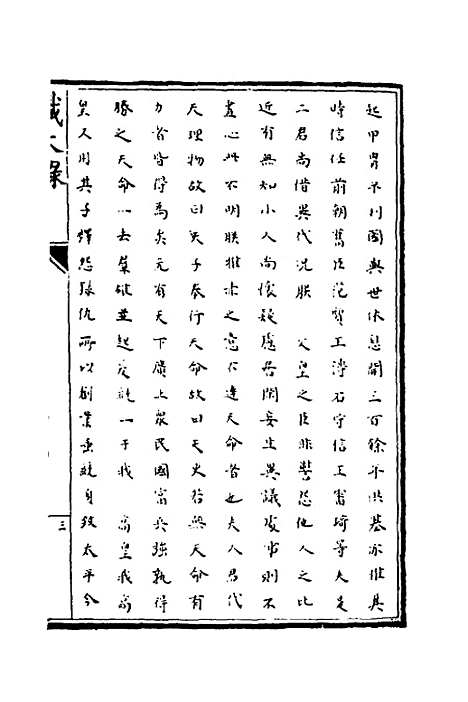 起甲冑平列國與世休息開三百餘年洪基亦推其
時信任前朝舊臣范質王溥石守信王審琦等夫是
二君尚借異代況朕　父皇之臣非讐怨他人之比
近有無知小人尚懷疑慮居閒妄生異議處事則不
盡心此不明朕推赤之意不達天命者也夫人君代
天理物故曰天子奉行天命故曰天吏若無天命有
力者皆得為矣元有天下廣土眾民國富兵強孰得
勝之天命一去羣雄並起爰統一于我　高皇我高
皇又用其子釋怨仇所以創業垂統身致太平今
識大錄
三